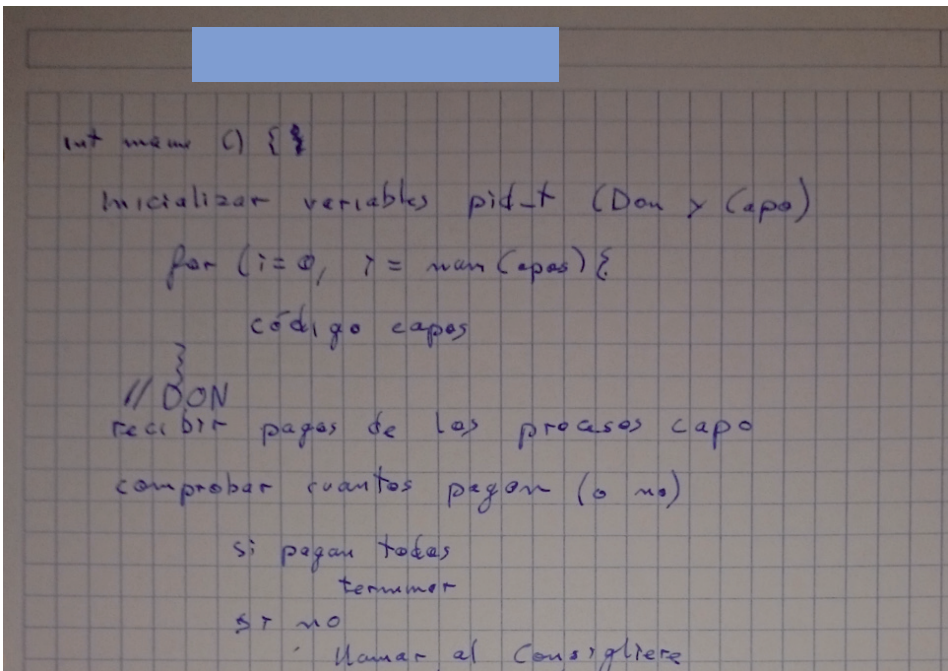 int main () {}
Inicializar variables pid_t (Don y Capo)
for (i=0, i = num Capos) {
código capos
}
// DON
recibir pagos de los procesos capo
comprobar cuantos pagan (o no)
si pagan todos
terminar
si no
llamar al Consigliere